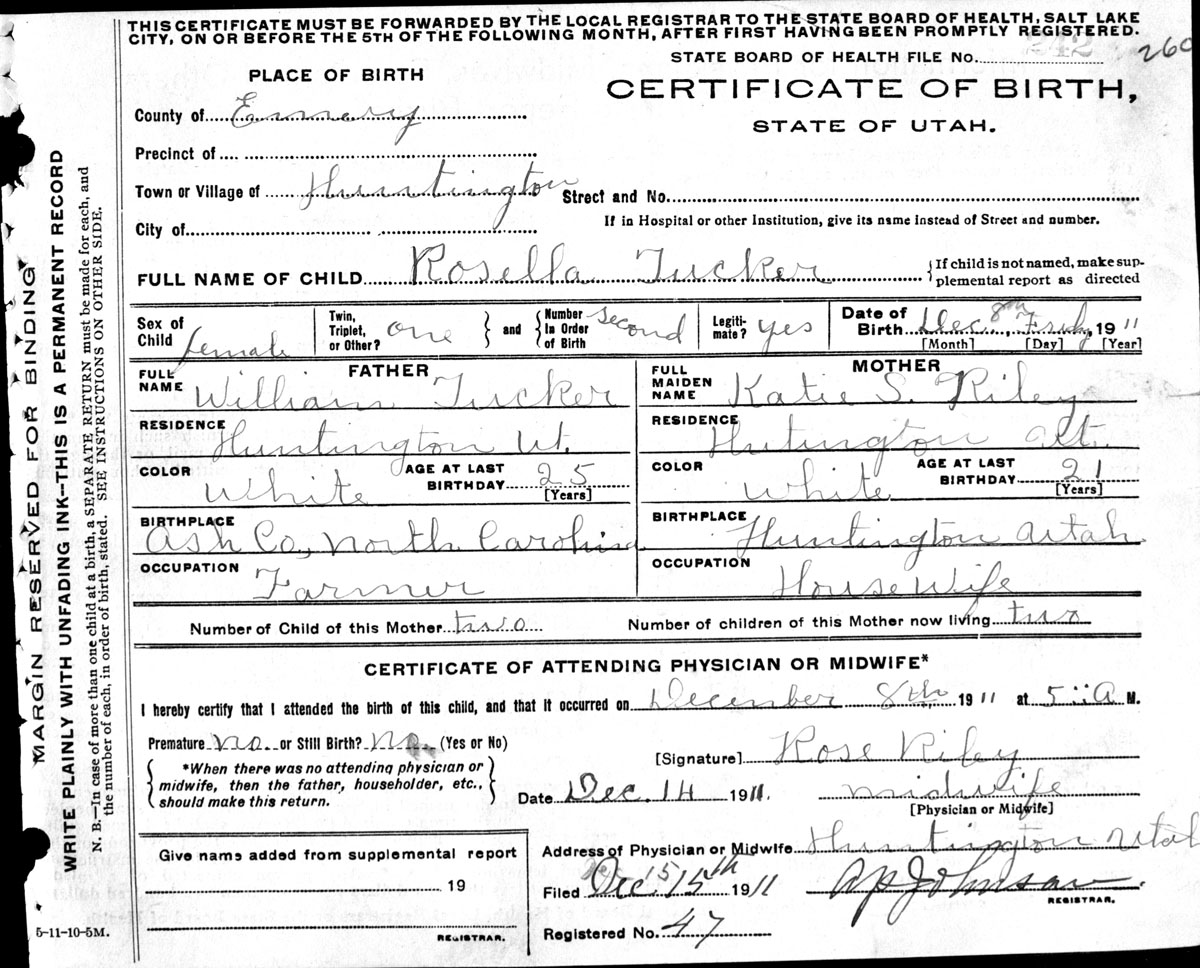 THIS CERTIFICATE MUST BE FORWARDED BY THE LOCAL REGISTRAR TO THE STATE BOARD OF HEALTH, SALT LAKE
CITY, ON OR BEFORE THE 5TH OF THE FOLLOWING MONTH, AFTER FIRST HAVING BEEN PROMPTLY REGISTERED.
STATE BOARD OF HEALTH FILE No. 242 260
PLACE OF BIRTH
CERTIFICATE OF BIRTH,
STATE OF UTAH.
County of Emery
Precinct of
Town or Village of Huntington Street and No.
City of If in Hospital or other Institution, give its name instead of Street and number.
FULL NAME OF CHILD Rosella Tucker {If child is not named, make sup-
plemental report as directed
Sex of Child female Twin, Triplet, or Other? one } and { Number in Order of Birth second Legiti-mate? yes Date of Birth Dec 8th Friday 1911
[Month] [Day] [Year]
FATHER MOTHER
FULL NAME William Tucker FULL MAIDEN NAME Katie S. Riley
RESIDENCE Huntington Ut. RESIDENCE Hutington Ut.
COLOR White AGE AT LAST BIRTHDAY 25 [Years] COLOR White AGE AT LAST BIRTHDAY 21 [Years]
BIRTHPLACE Ash Co, North Carolina BIRTHPLACE Huntington Utah
OCCUPATION Farmer OCCUPATION House Wife
Number of Child of this Mother two Number of children of this Mother now living two
CERTIFICATE OF ATTENDING PHYSICIAN OR MIDWIFE*
I hereby certify that I attended the birth of this child, and that it occurred on December 8th, 1911 at 5 A M.
Premature no or Still Birth? No (Yes or No)
[Signature] Rose Riley
*When there was no attending physician or
midwife, then the father, householder, etc.,
should make this return.
Date Dec. 14 1911. midwife
[Physician or Midwife]
Give name added from supplemental report
Address of Physician or Midwife Huntington Utah
19
Filed Dec 15 15th 1911 A P Johnson
REGISTRAR.
Registered No. 47
REGISTRAR.
5-11-10-5M.
MARGIN RESERVED FOR BINDING
WRITE PLAINLY WITH UNFADING INK—THIS IS A PERMANENT RECORD
N. B.—In case of more than one child at a birth, a SEPARATE RETURN must be made for each, and
the number of each, in order of birth, stated. SEE INSTRUCTIONS ON OTHER SIDE.